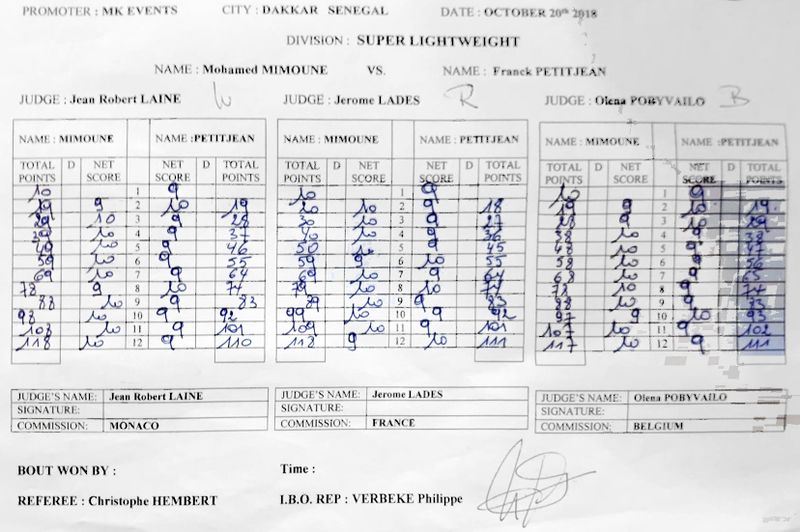 PROMOTER : MK EVENTS CITY : DAKKAR SENEGAL DATE : OCTOBER 20th 2018
DIVISION : SUPER LIGHTWEIGHT
NAME : Mohamed MIMOUNE VS. NAME : Franck PETITJEAN
JUDGE : Jean Robert LAINE JUDGE : Jerome LADES R JUDGE : Olena POBYVAILO B
NAME : MIMOUNE NAME :PETITJEAN NAME : MIMOUNE NAME : PETITJEAN NAME : MIMOUNE NAME :PETITJEAN
TOTAL POINTS D NET SCORE NET SCORE D TOTAL POINTS TOTAL POINTS D NET SCORE NET SCORE D TOTAL POINTS TOTAL POINTS D NET SCORE NET SCORE D TOTAL POINTS
10 1 9 10 1 9 10 1 9
19 9 2 10 19 20 10 2 9 18 19 9 2 10 19
29 10 3 9 28 30 10 3 9 27 28 9 3 10 29
39 10 4 9 37 40 10 4 9 36 38 10 4 9 38
49 10 5 9 46 50 10 5 9 45 48 10 5 9 47
59 10 6 9 55 59 6 10 55 58 10 6 9 56
69 10 7 9 64 69 10 7 9 64 68 10 7 9
78 9 8 10 74 79 10 8 10 74 78 10 8 9 74
88 10 9 9 83 89 10 9 9 83 88 10 9 9 83
98 10 10 9 92 99 10 10 9 92 97 9 10 10 93
108 10 11 9 101 10 11 9 101 107 10 11 9 102
118 10 12 9 110 118 9 12 10 111 117 10 12 9 111
JUDGE'S NAME: Jean Robert LAINE JUDGE'S NAME: Jerome LADES JUDGE'S NAME: Olena POBYVAILO
SIGNATURE: SIGNATURE: SIGNATURE:
COMMISSION: MONACO COMMISSION: FRANCE COMMISSION: BELGIUM
BOUT WON BY : Time :
REFEREE : Christophe HEMBERT I.B.O. REP : VERBEKE Philippe